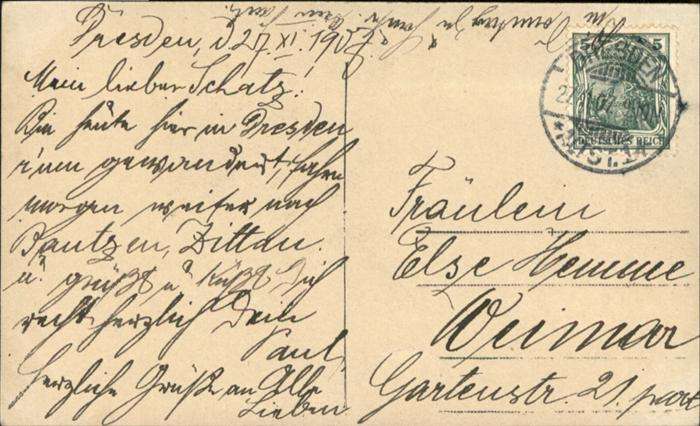 Dresden, d. 27. XI. 1907.
Mein lieber Schatz!
Bin heute hier in Dresden
rum gewandert, fahre
morgen weiter nach
Bautzen, Zittau
u. grüßt u. küßt Dich
recht herzlich Dein
Paul.
Herzliche Grüße an Alle
Lieben
DRESDEN
ALTST. 14
5 5
DEUTSCHES REICH
Fräulein
Else Hemme
Weimar
Gartenstr. 21. part